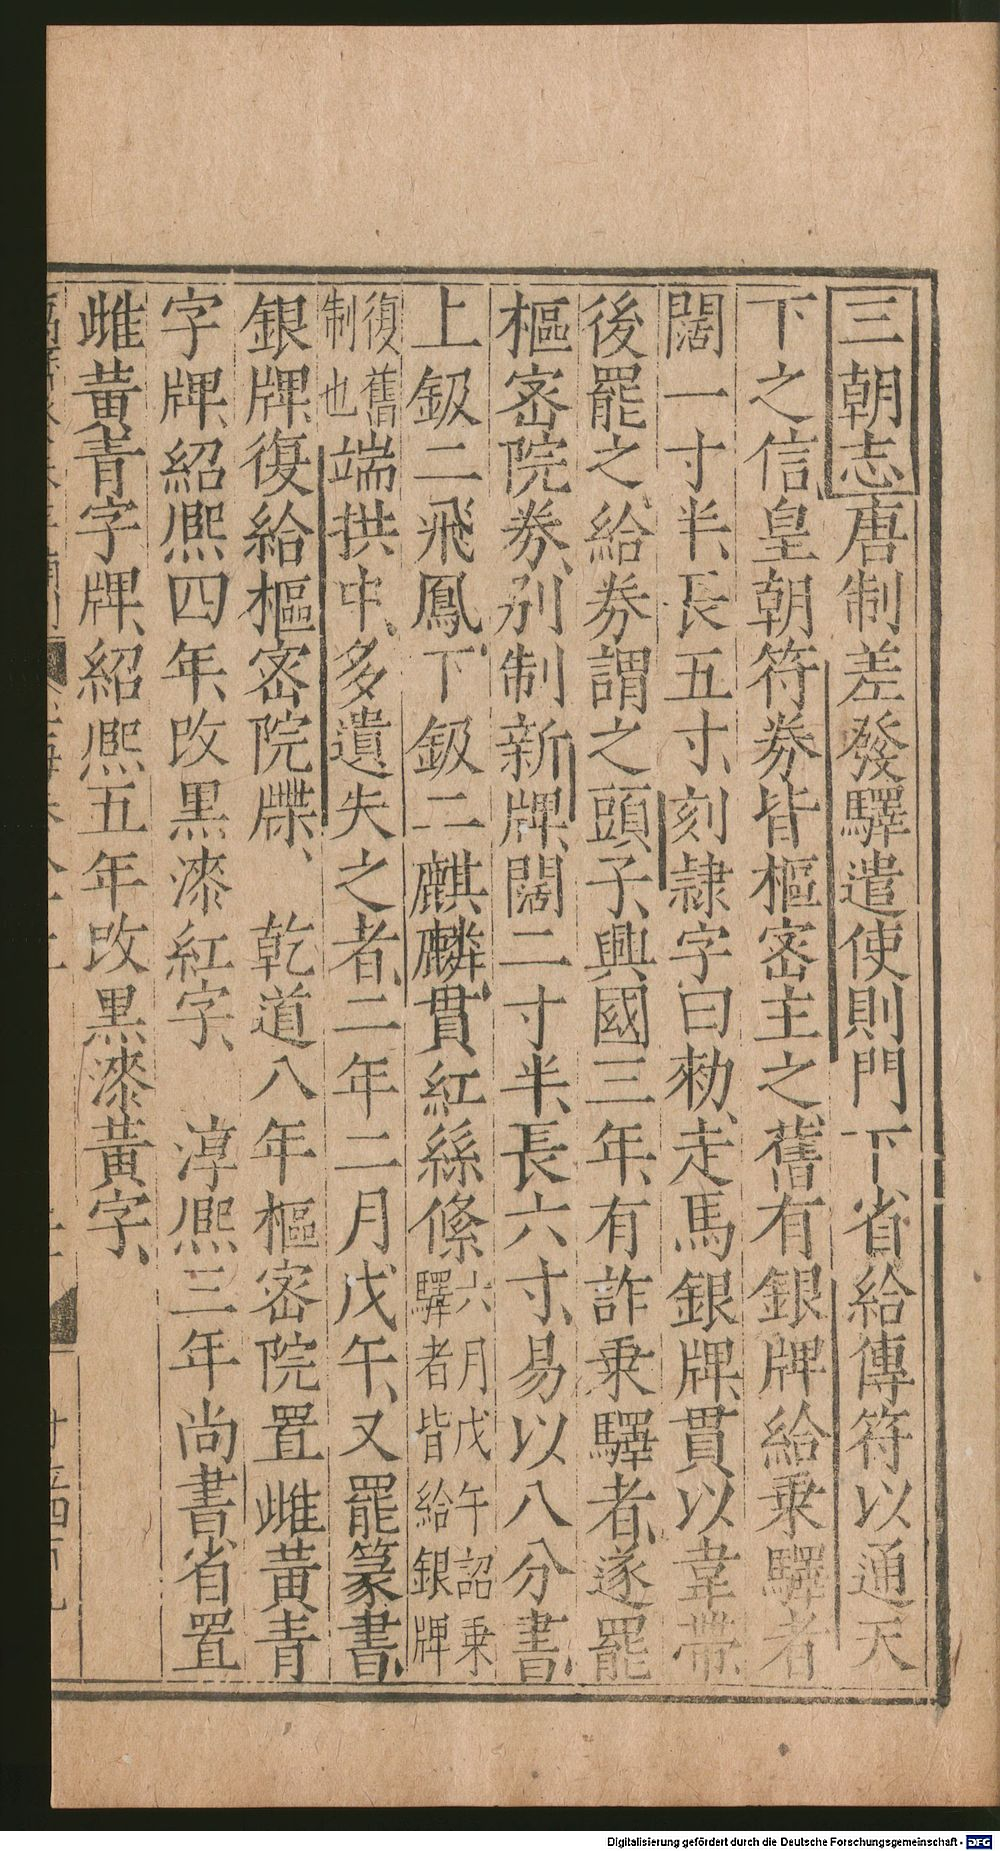 三朝志唐制差發驛遣使則門下省給傳符以通天
下之信皇朝符券皆樞密主之舊有銀牌給乗驛者
闊一寸半長五寸刻隷字曰勑走馬銀牌貫以韋帶
後罷之給券謂之頭子興國三年有詐乗驛者遂罷
樞密院券別制新牌闊二寸半長六寸易以八分書
上鈒二飛鳳下鈒二麒麟貫紅絲絛六月戊午詔乗驛者皆給銀牌
復舊制也端拱中多遺失之者二年二月戊午又罷篆書
銀牌復給樞密院牒 乾道八年樞密院置雌黃青
字牌紹熙四年改黑漆紅字 淳熙三年尚書省置
雌黃青字牌紹熙五年改黑漆黃字
Digitalisierung gefördert durch die Deutsche Forschungsgemeinschaft - DFG